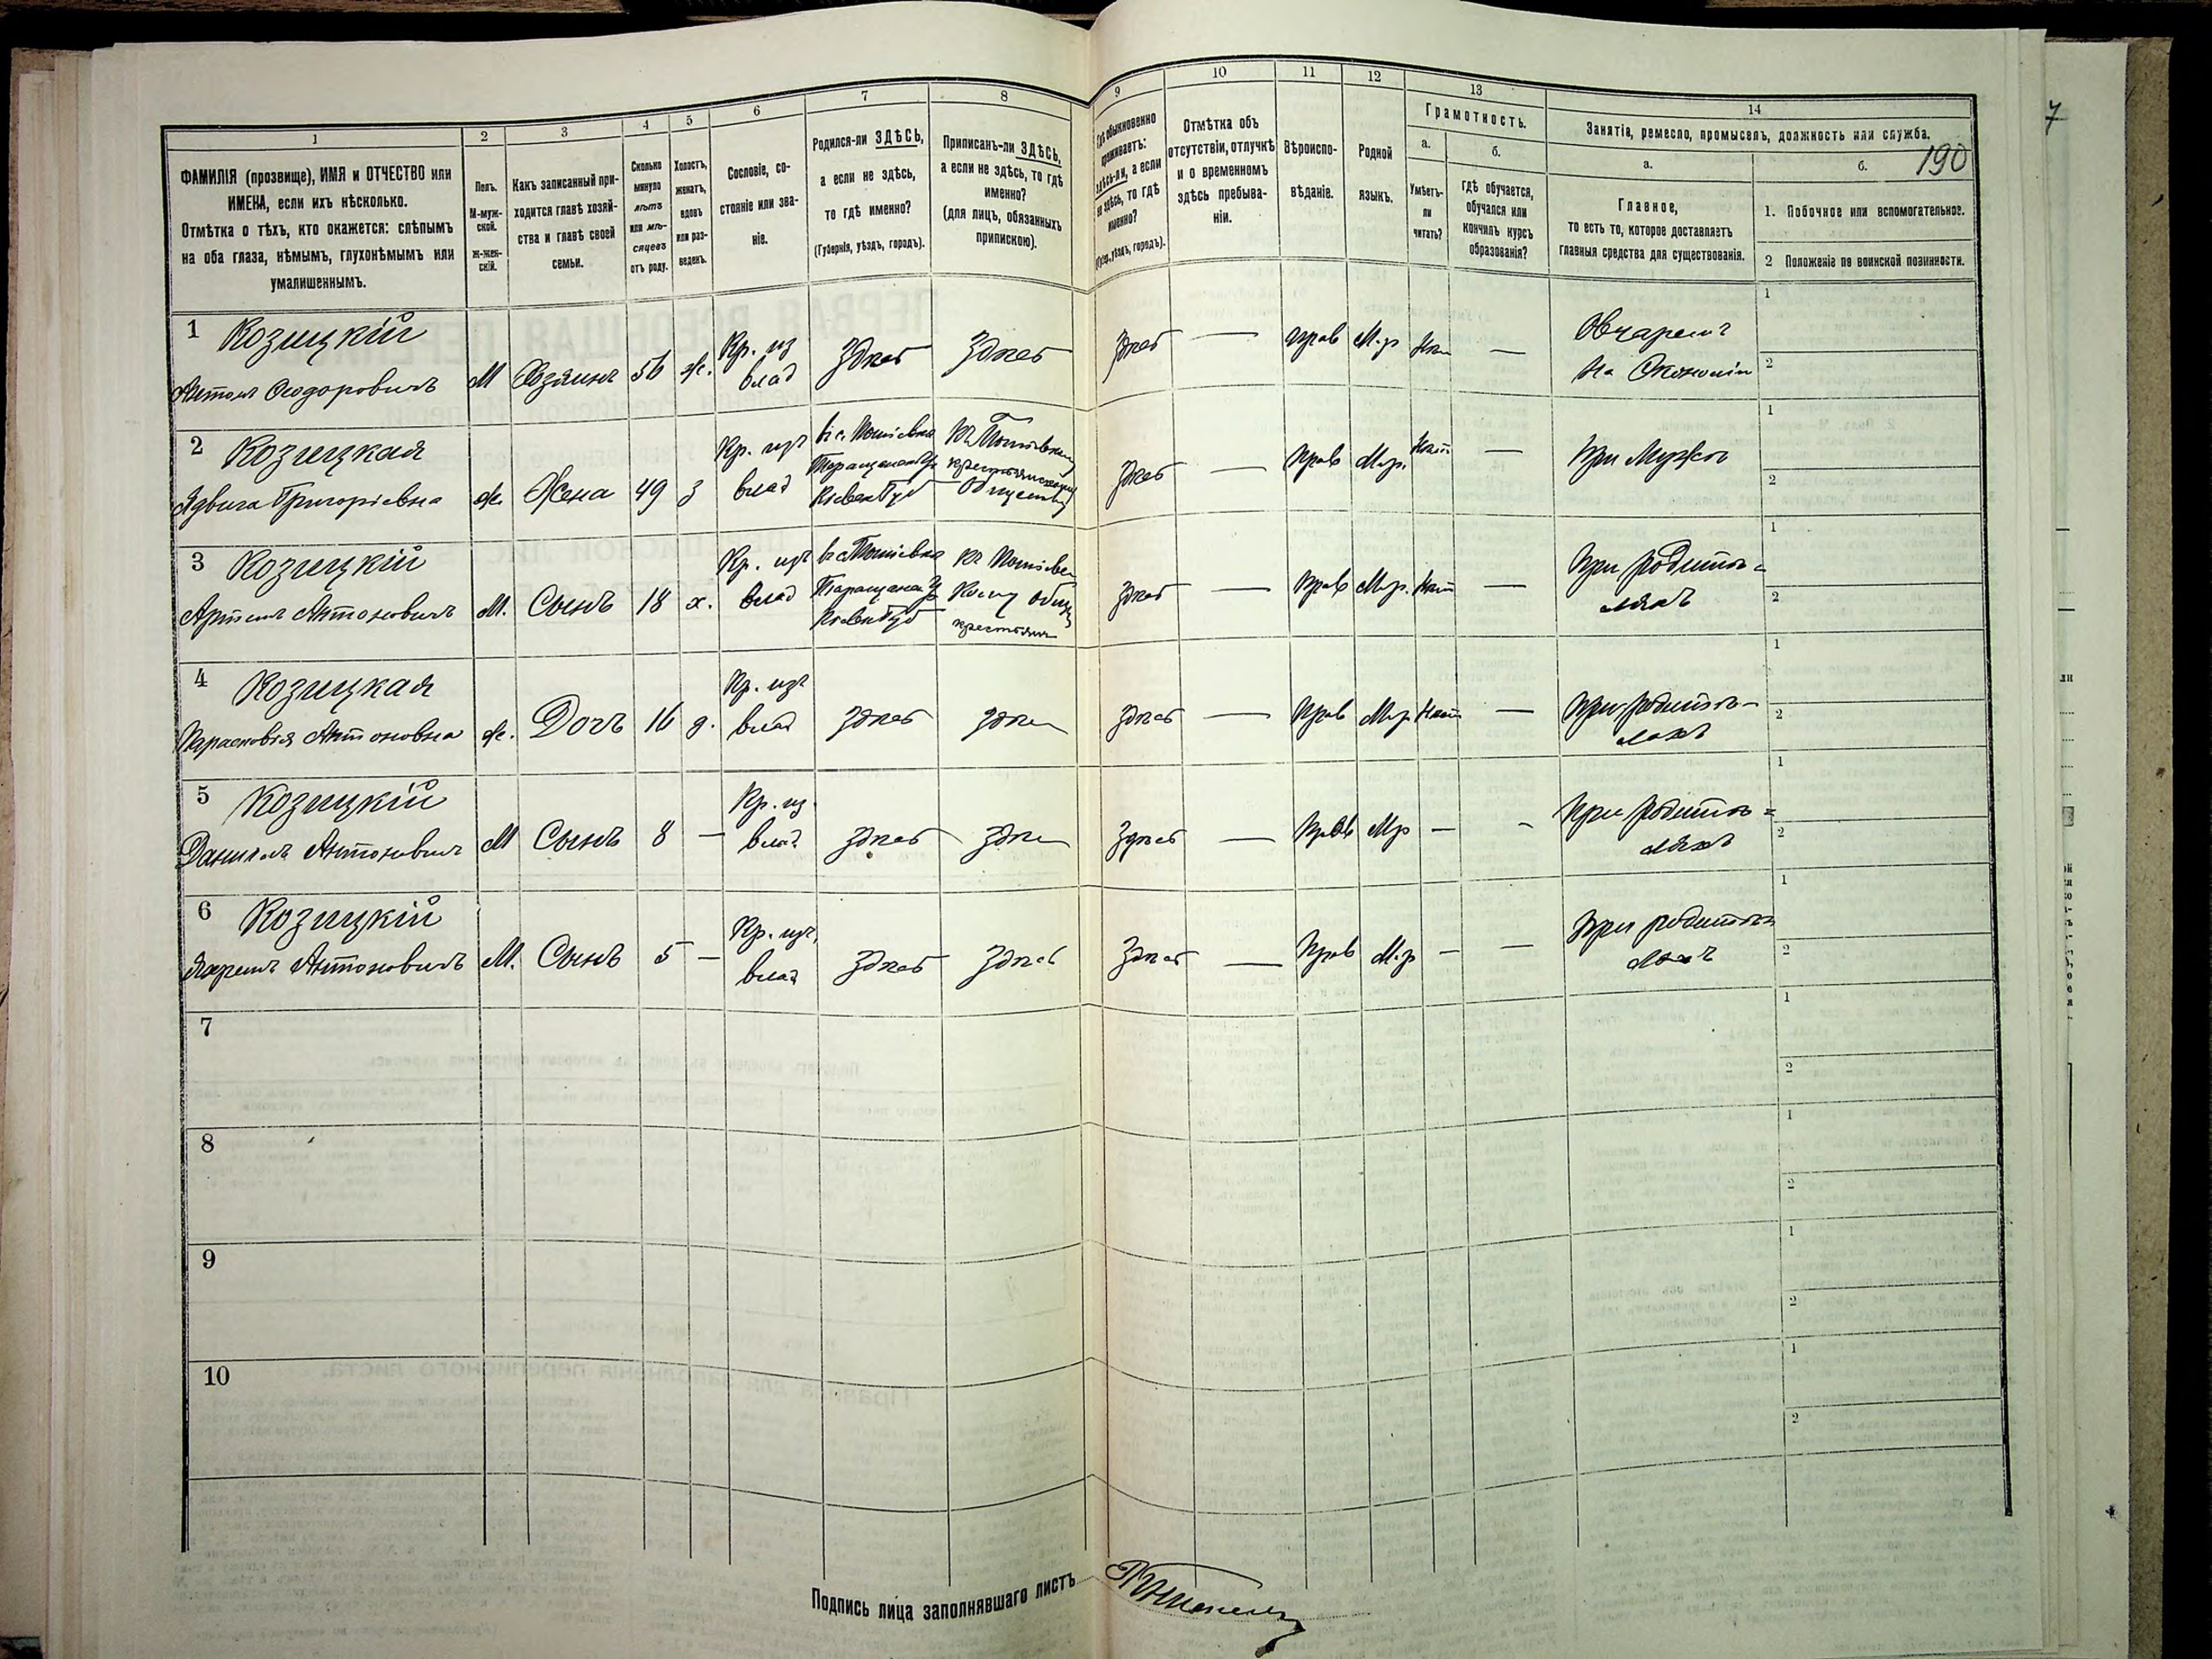 7
190
1
2
3
4
5
6
7
8
9
10
11
12
13
14
ФАМИЛІЯ (прозвище), ИМЯ и ОТЧЕСТВО или
ИМЕНА, если ихъ нѣсколько.
Отмѣтка о тѣхъ, кто окажется: слѣпымъ
на оба глаза, нѣмымъ, глухонѣмымъ или
умалишеннымъ.
Полъ.
М-муж-
ской.
Ж-жен-
скій.
Какъ записанный при-
ходится главѣ хозяй-
ства и главѣ своей
семьи.
Сколько
минуло
лѣтъ
или мѣ-
сяцевъ
отъ роду.
Холостъ,
женатъ,
вдовъ
или раз-
веденъ.
Сословіе, со-
стояніе или зва-
ніе.
Родился-ли ЗДѢСЬ,
а если не здѣсь,
то гдѣ именно?
(Губернія, уѣздъ, городъ).
Приписанъ-ли ЗДѢСЬ,
а если не здѣсь, то гдѣ
именно?
(для лицъ, обязанныхъ
припискою).
Гдѣ обыкновенно
проживаетъ:
здѣсь-ли, а если
не здѣсь, то гдѣ
именно?
(Губер., уѣздъ, городъ).
Отмѣтка объ
отсутствіи, отлучкѣ
и о временномъ
здѣсь пребыва-
ніи.
Вѣроиспо-
вѣданіе.
Родной
языкъ.
Грамотность.
а.
Умѣетъ-
ли
читать?
б.
гдѣ обучается,
обучался или
кончилъ курсъ
образованія?
Занятія, ремесло, промыселъ, должность или служба.
а.
Главное,
то есть то, которое доставляетъ
главныя средства для существованія.
б.
1. Побочное или вспомогательное.
2 Положеніе по воинской повинности.
1 Козицкій
Антонъ Ѳеодоровичъ
М Хозяинъ 56 ж.
Кр. из
влад
Здѣсь Здѣсь Здѣсь — прав М.р — 
Овчаремъ
На Экономіи
1
2
2 Козицкая
Ядвига Григорьевна
ж. Жена 49 з
Кр. изъ
влад
Таращанск У
Кіевск Губ
крестьянскому
Обществу
Здѣсь — Прав М.р. Нѣт —
При Мужѣ
1
2
3 Козицкій
Артемъ Антоновичъ
М. Сынъ 18 х.
Кр. изъ
влад
Таращанск У
Кіевск Губ
Кому общ
крестьян
Здѣсь — Прав М.р. Нѣт —
При родите=
ляхъ
1
2
4 Козицкая
Парасковія Антоновна
ж. Дочь 16 д.
Кр. изъ
влад
Здѣсь Здѣ Здѣсь — Прав М.р Нѣт —
При родите-
ляхъ
1
2
5 Козицкій
Данилъ Антоновичъ
М Сынъ 8 —
Кр. из.
влад
Здѣсь Здѣ Здѣсь — Прав М.р — -
При родите=
ляхъ
1
2
6 Козицкій
Яремъ Антоновичъ
М. Сынъ 5 —
Кр. изъ
влад
Здѣсь Здѣсь Здѣсь — Прав М.р — —
При родите=
ляхъ
1
2
7
1
2
8
1
2
9
1
2
10
1
2
Подпись лица заполнявшаго листъ